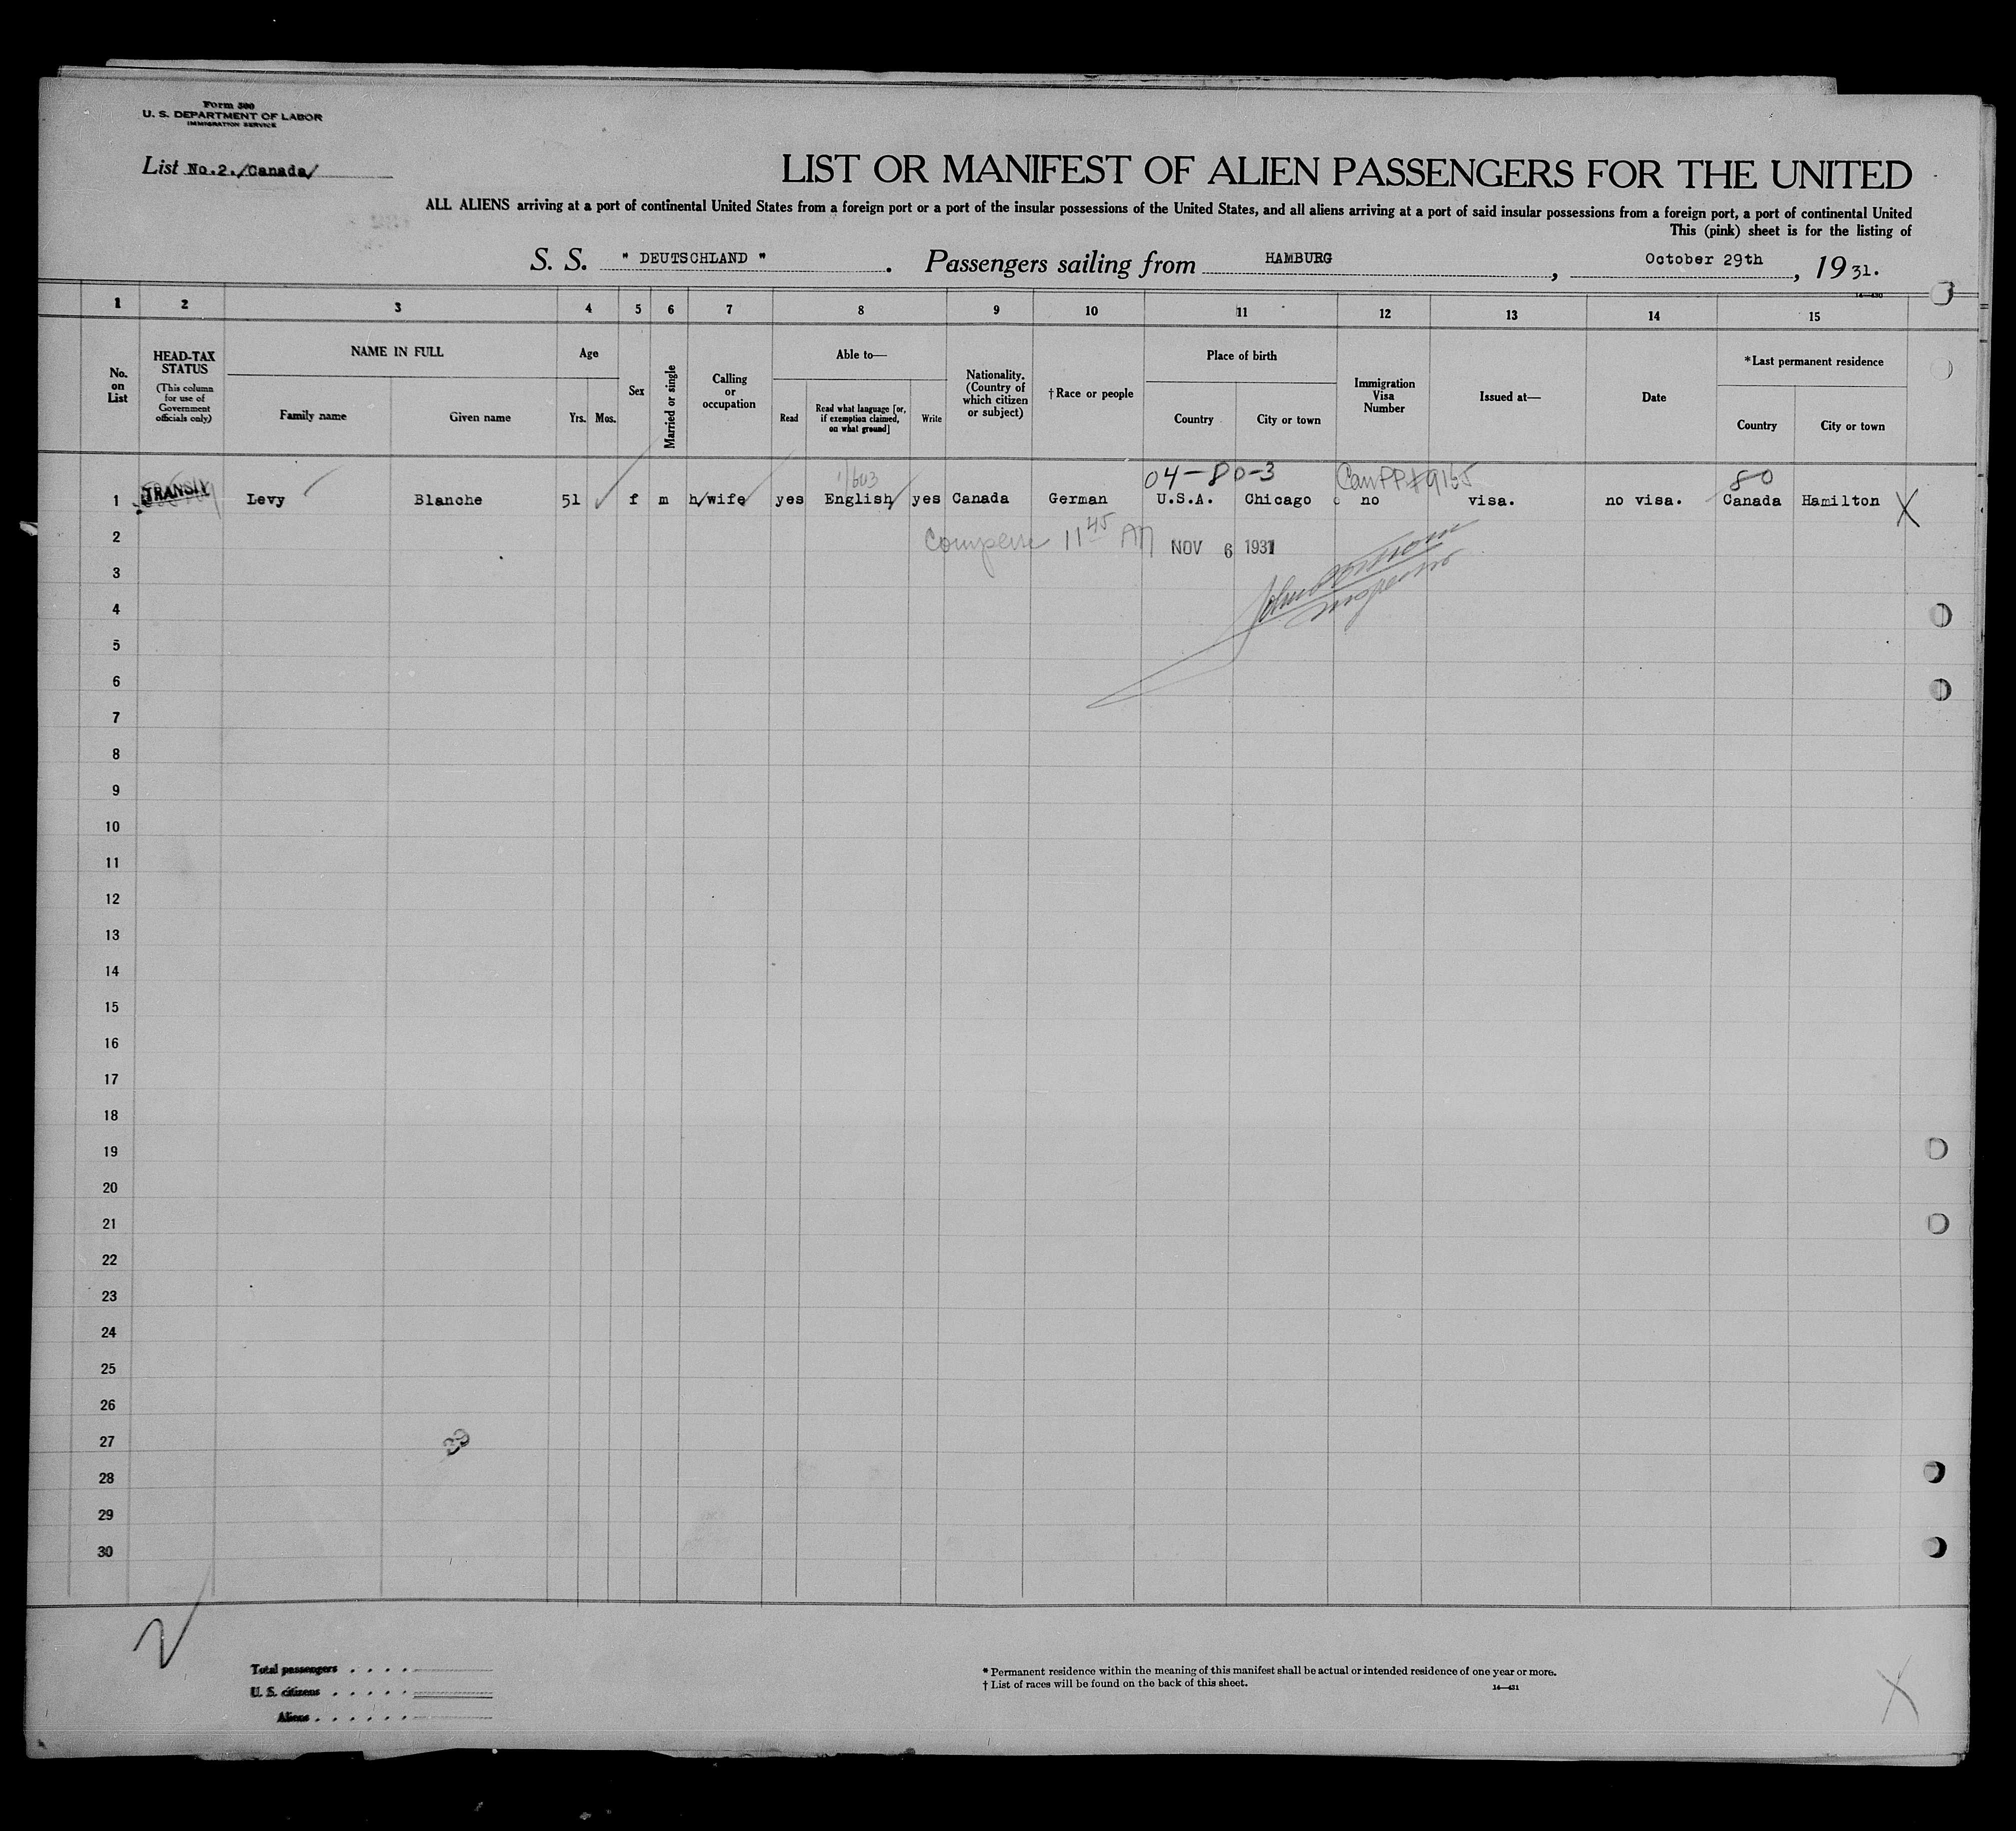 Form 500
U. S. DEPARTMENT OF LABOR
IMMIGRATION SERVICE
List No.2./Canada/
LIST OR MANIFEST OF ALIEN PASSENGERS FOR THE UNITED
ALL ALIENS arriving at a port of continental United States from a foreign port or a port of the insular possessions of the United States, and all aliens arriving at a port of said insular possessions from a foreign port, a port of continental United
This (pink) sheet is for the listing of
S. S. " DEUTSCHLAND " . Passengers sailing from HAMBURG , October 29th , 19 31.
14—430
1 2 3 4 5 6 7 8 9 10 11 12 13 14 15
No. on List
HEAD-TAX STATUS
(This column for use of Government officials only)
NAME IN FULL
Family name
Given name
Age
Yrs. Mos.
Sex
Married or single
Calling or occupation
Able to—
Read
Read what language [or, if exemption claimed, on what ground]
Write
Nationality. (Country of which citizen or subject)
†Race or people
Place of birth
Country
City or town
Immigration Visa Number
Issued at—
Date
*Last permanent residence
Country
City or town
04-80-3 Can PP #9165 80
1 TRANSIT Levy Blanche 51 f m h/wife yes English yes Canada German U.S.A. Chicago no visa. no visa. Canada Hamilton X
2 11 45 AM NOV 6 1931
3
4
5
6
7
8
9
10
11
12
13
14
15
16
17
18
19
20
21
22
23
24
25
26
27
28
29
30
Total passengers . . . .
U. S. citizens . . . . .
Aliens . . . . . .
* Permanent residence within the meaning of this manifest shall be actual or intended residence of one year or more.
† List of races will be found on the back of this sheet.
14—431
X